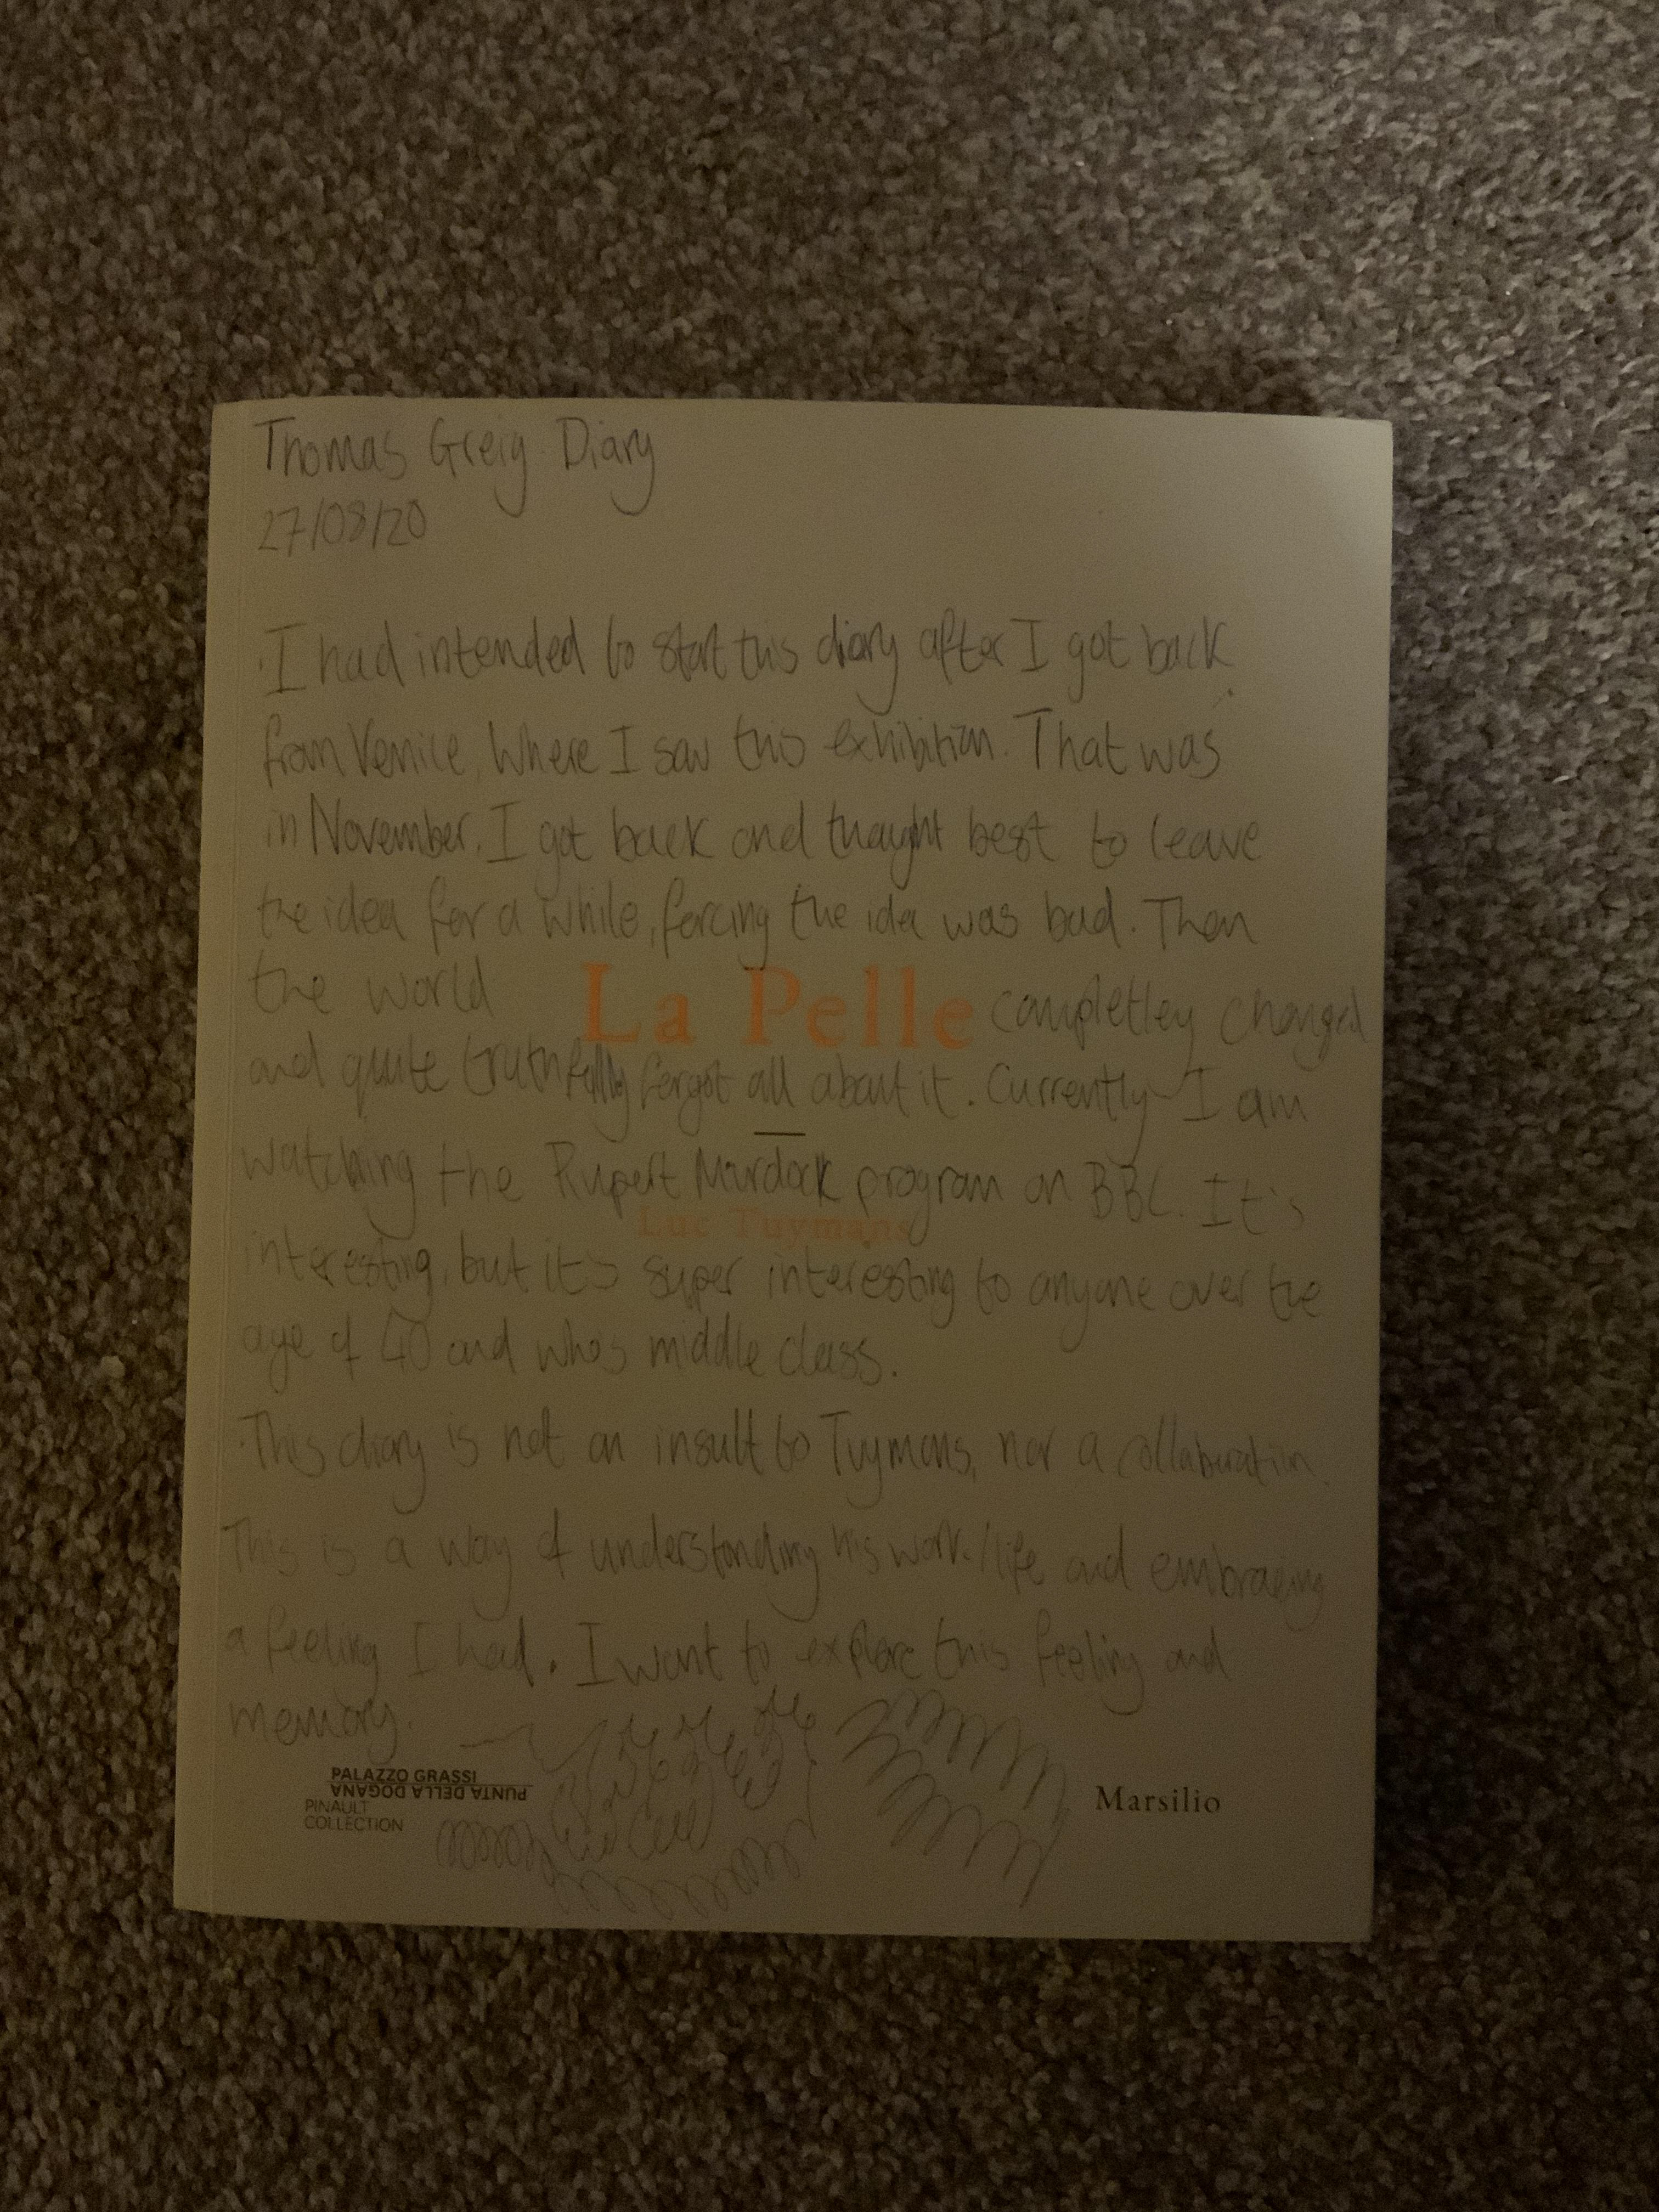 Thomas Greig Diary
27/08/20
I had intended to start this diary after I got back
from Venice, Where I saw this exhibition. That was
in November. I got back and thought best to leave
the idea for a while, forcing the idea was bad. Then
the world La Pelle completley changed
and quite truthfully forgot all about it. Currently I am
watching the Rupert Murdock program on BBC. It's
Luc Tuymans
interesting, but it's super interesting to anyone over the
age of 40 and who's middle class.
This diary is not an insult to Tuymans, nor a collaboration.
This is a way of understanding his work/life and embracing
a feeling I had. I want to explore this feeling and
memory.
PALAZZO GRASSI
PUNTA DELLA DOGANA
PINAULT
COLLECTION
Marsilio